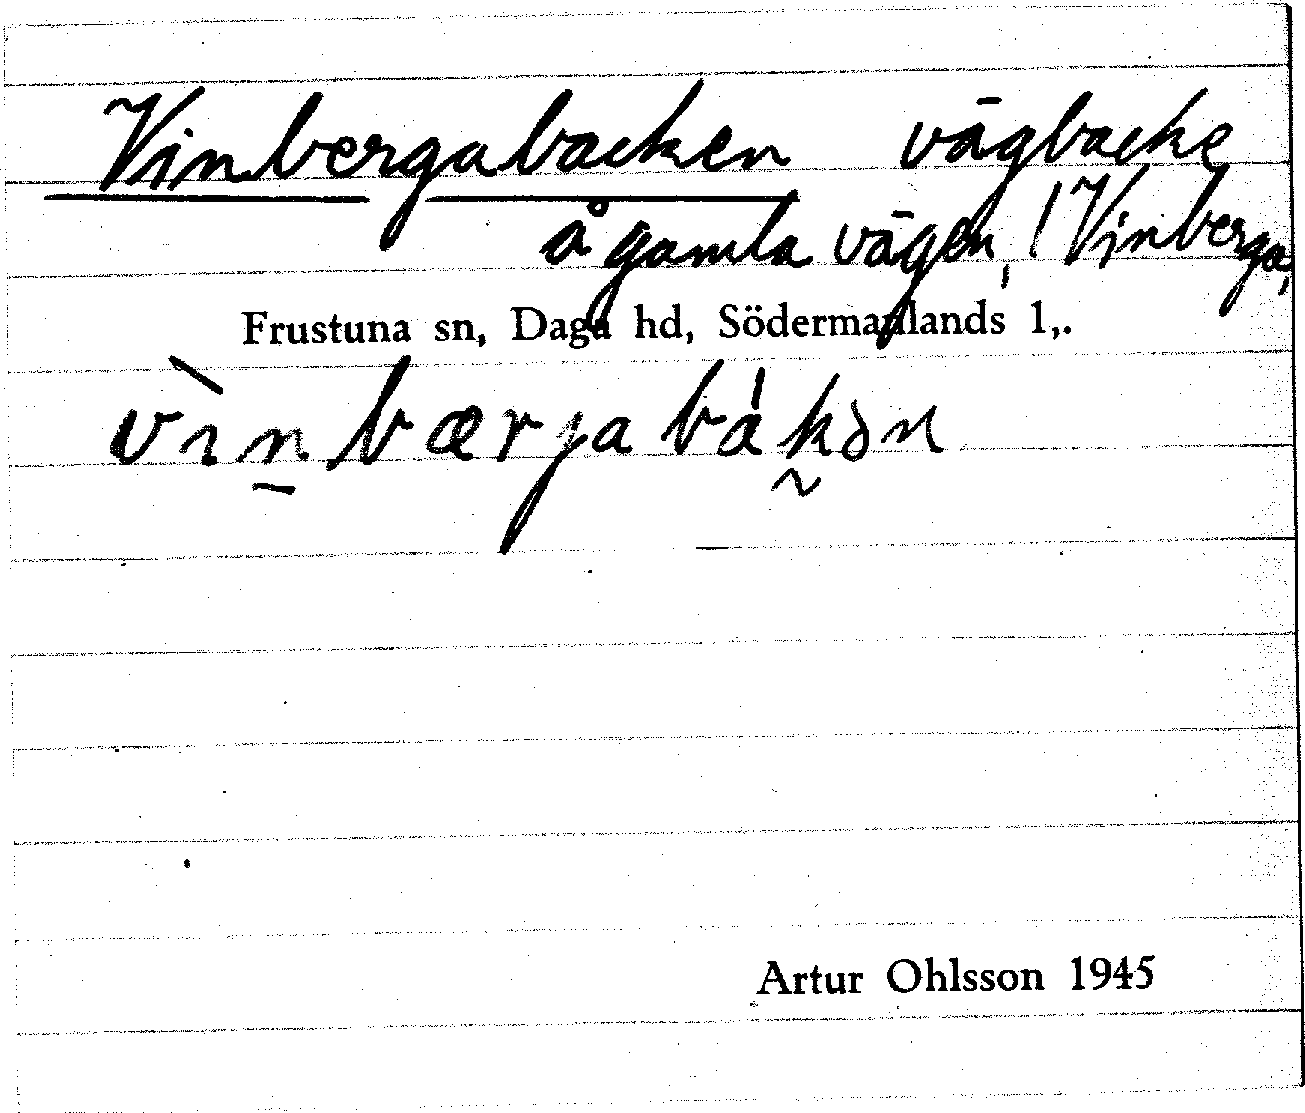 Vinbergabacken vägbacke
å gamla vägen, / Vinberga,
Frustuna sn, Daga hd, Södermanlands l,.
vìnbærjabákən
Artur Ohlsson 1945